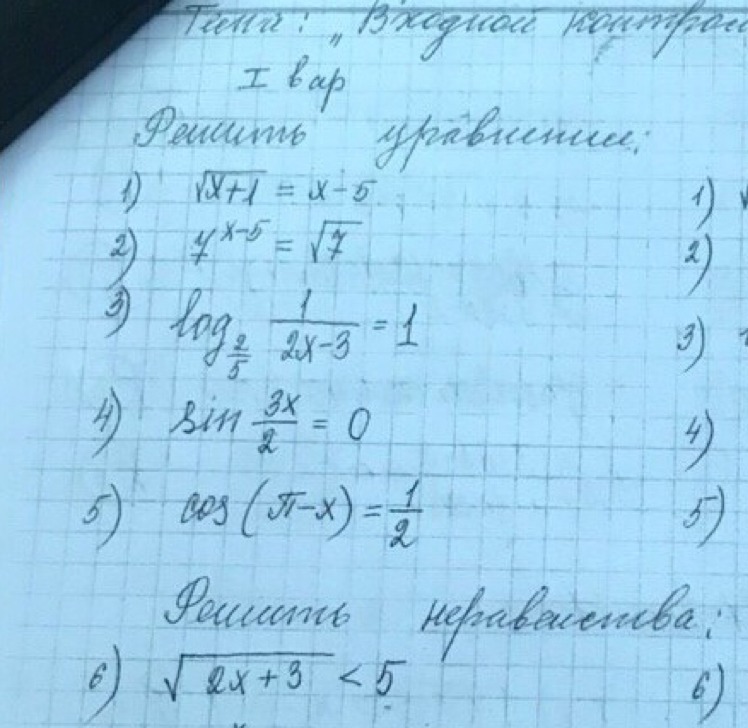 Тема: „Входной контрол
I вар
Решить уравнения:
1) √x+1 = x-5
2) 7^x-5 = √7
3) log_2/5 1/2x-3 = 1
4) sin 3x/2 = 0
5) cos (π-x) = 1/2
Решить неравенства:
6) √2x+3 < 5
1) √
2)
3)
4)
5)
6)